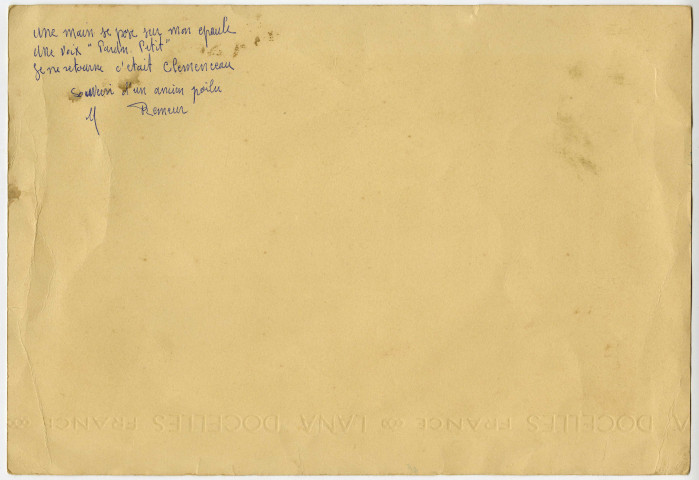 une main se pose sur mon epaule
une voix "Pardon Petit"
Je me retourne c'était Clemenceau
Souvenir d'un ancien poilu
M Remeur
DOCELLES FRANCE LANA DOCELLES FRANCE